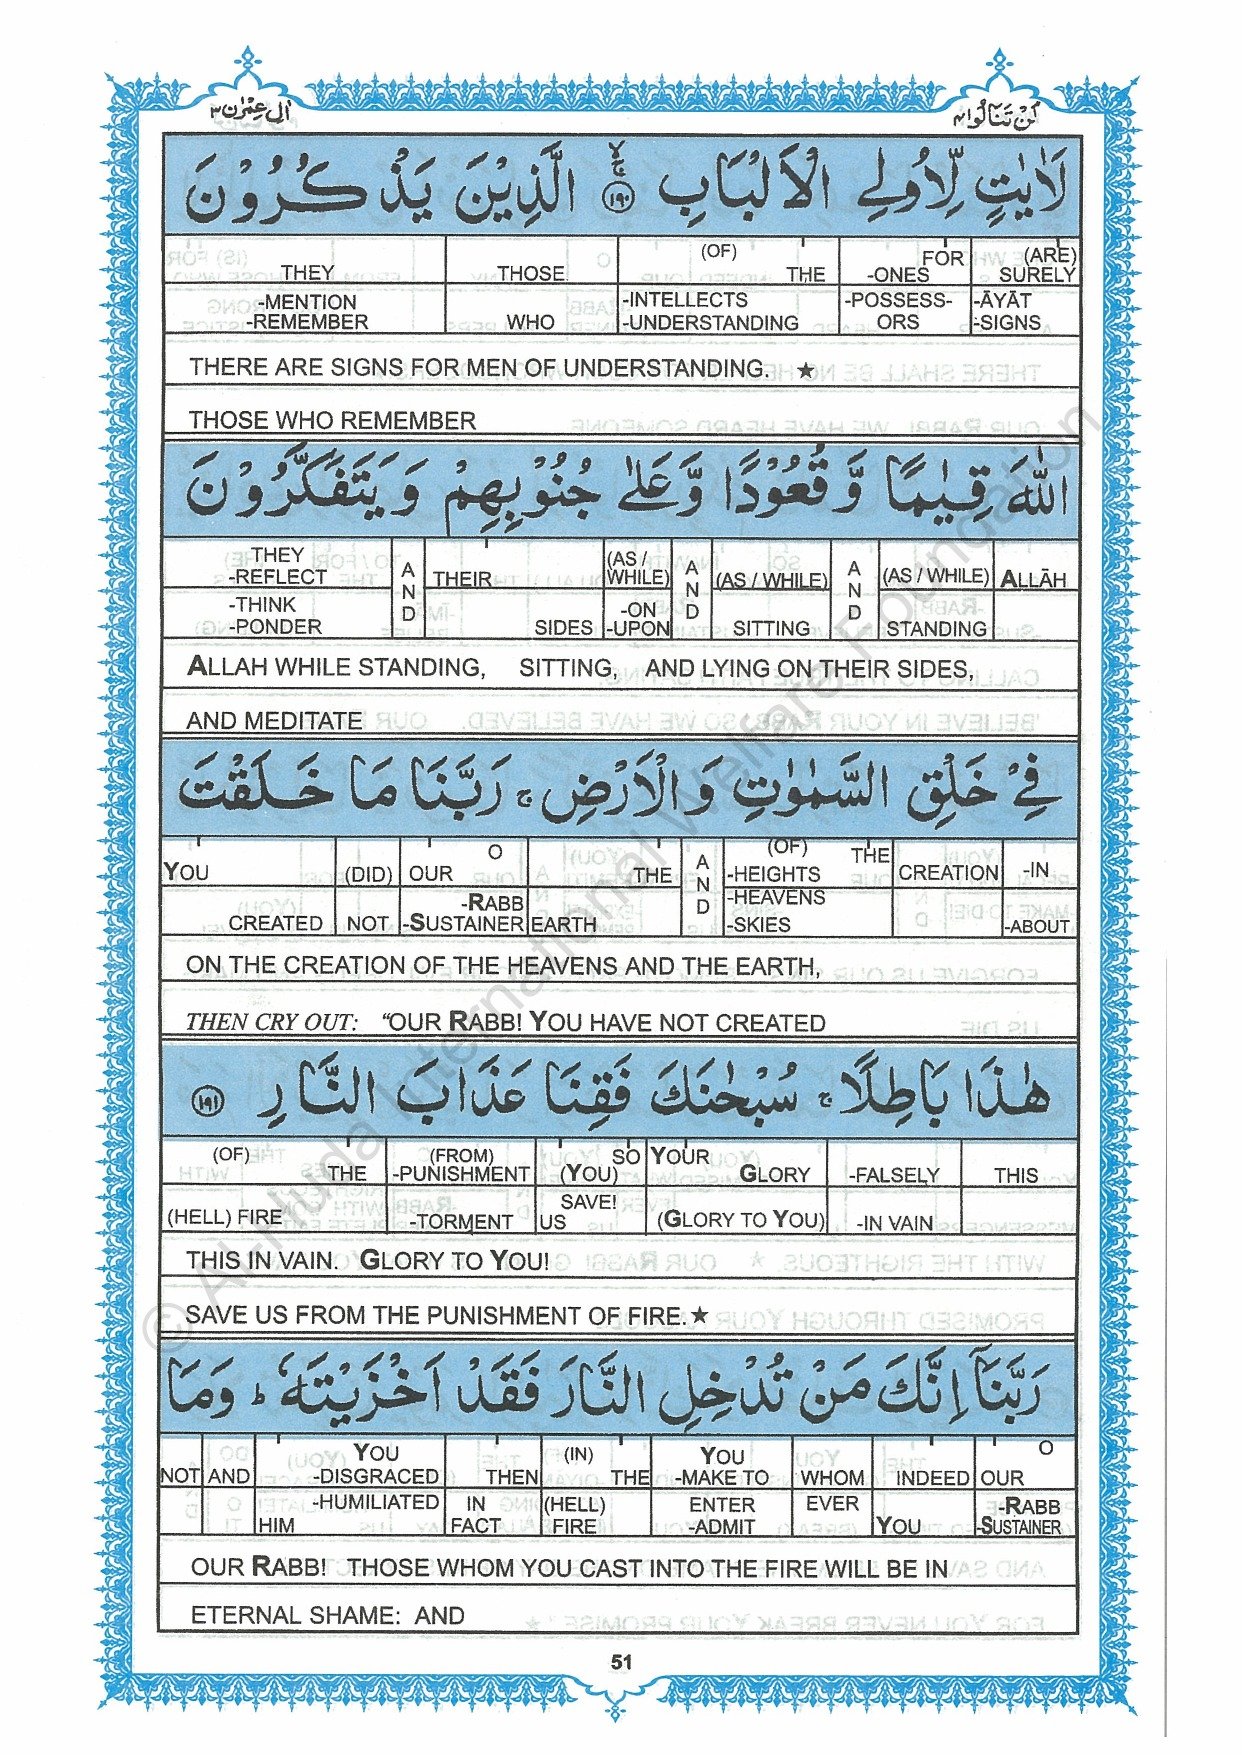 اٰلِ عِمْرٰن ٣
لَنْ تَنَالُوا ٤
لَاٰيٰتٍ لِّاُولِي الْاَلْبَابِ ۙۚ ١٩٠ الَّذِيْنَ يَذْكُرُوْنَ
THEY THOSE (OF) THE FOR -ONES (ARE) SURELY
-MENTION -REMEMBER WHO -INTELLECTS -UNDERSTANDING -POSSESS- ORS -ĀYĀT -SIGNS
THERE ARE SIGNS FOR MEN OF UNDERSTANDING. ★
THOSE WHO REMEMBER
اللّٰهَ قِيٰمًا وَّقُعُوْدًا وَّعَلٰى جُنُوْبِهِمْ وَيَتَفَكَّرُوْنَ
THEY -REFLECT AND THEIR (AS / WHILE) AND (AS / WHILE) AND (AS / WHILE) ALLĀH
-THINK -PONDER SIDES -ON -UPON SITTING STANDING
ALLAH WHILE STANDING, SITTING, AND LYING ON THEIR SIDES,
AND MEDITATE
فِيْ خَلْقِ السَّمٰوٰتِ وَالْاَرْضِ ۚ رَبَّنَا مَا خَلَقْتَ
YOU (DID) OUR O THE AND (OF) THE -HEIGHTS CREATION -IN
CREATED NOT -RABB -SUSTAINER EARTH -HEAVENS -SKIES -ABOUT
ON THE CREATION OF THE HEAVENS AND THE EARTH,
THEN CRY OUT: “OUR RABB! YOU HAVE NOT CREATED
هٰذَا بَاطِلًا ۚ سُبْحٰنَكَ فَقِنَا عَذَابَ النَّارِ ١٩١
(OF) THE (FROM) -PUNISHMENT SO (YOU) YOUR GLORY -FALSELY THIS
(HELL) FIRE -TORMENT SAVE! US (GLORY TO YOU) -IN VAIN
THIS IN VAIN. GLORY TO YOU!
SAVE US FROM THE PUNISHMENT OF FIRE.★
رَبَّنَآ اِنَّكَ مَنْ تُدْخِلِ النَّارَ فَقَدْ اَخْزَيْتَهٗ ؕ وَمَا
NOT AND YOU -DISGRACED THEN (IN) THE YOU -MAKE TO WHOM INDEED O OUR
-HUMILIATED HIM IN FACT (HELL) FIRE ENTER -ADMIT EVER YOU -RABB -SUSTAINER
OUR RABB! THOSE WHOM YOU CAST INTO THE FIRE WILL BE IN
ETERNAL SHAME: AND
51
© Al-Huda International Welfare Foundation